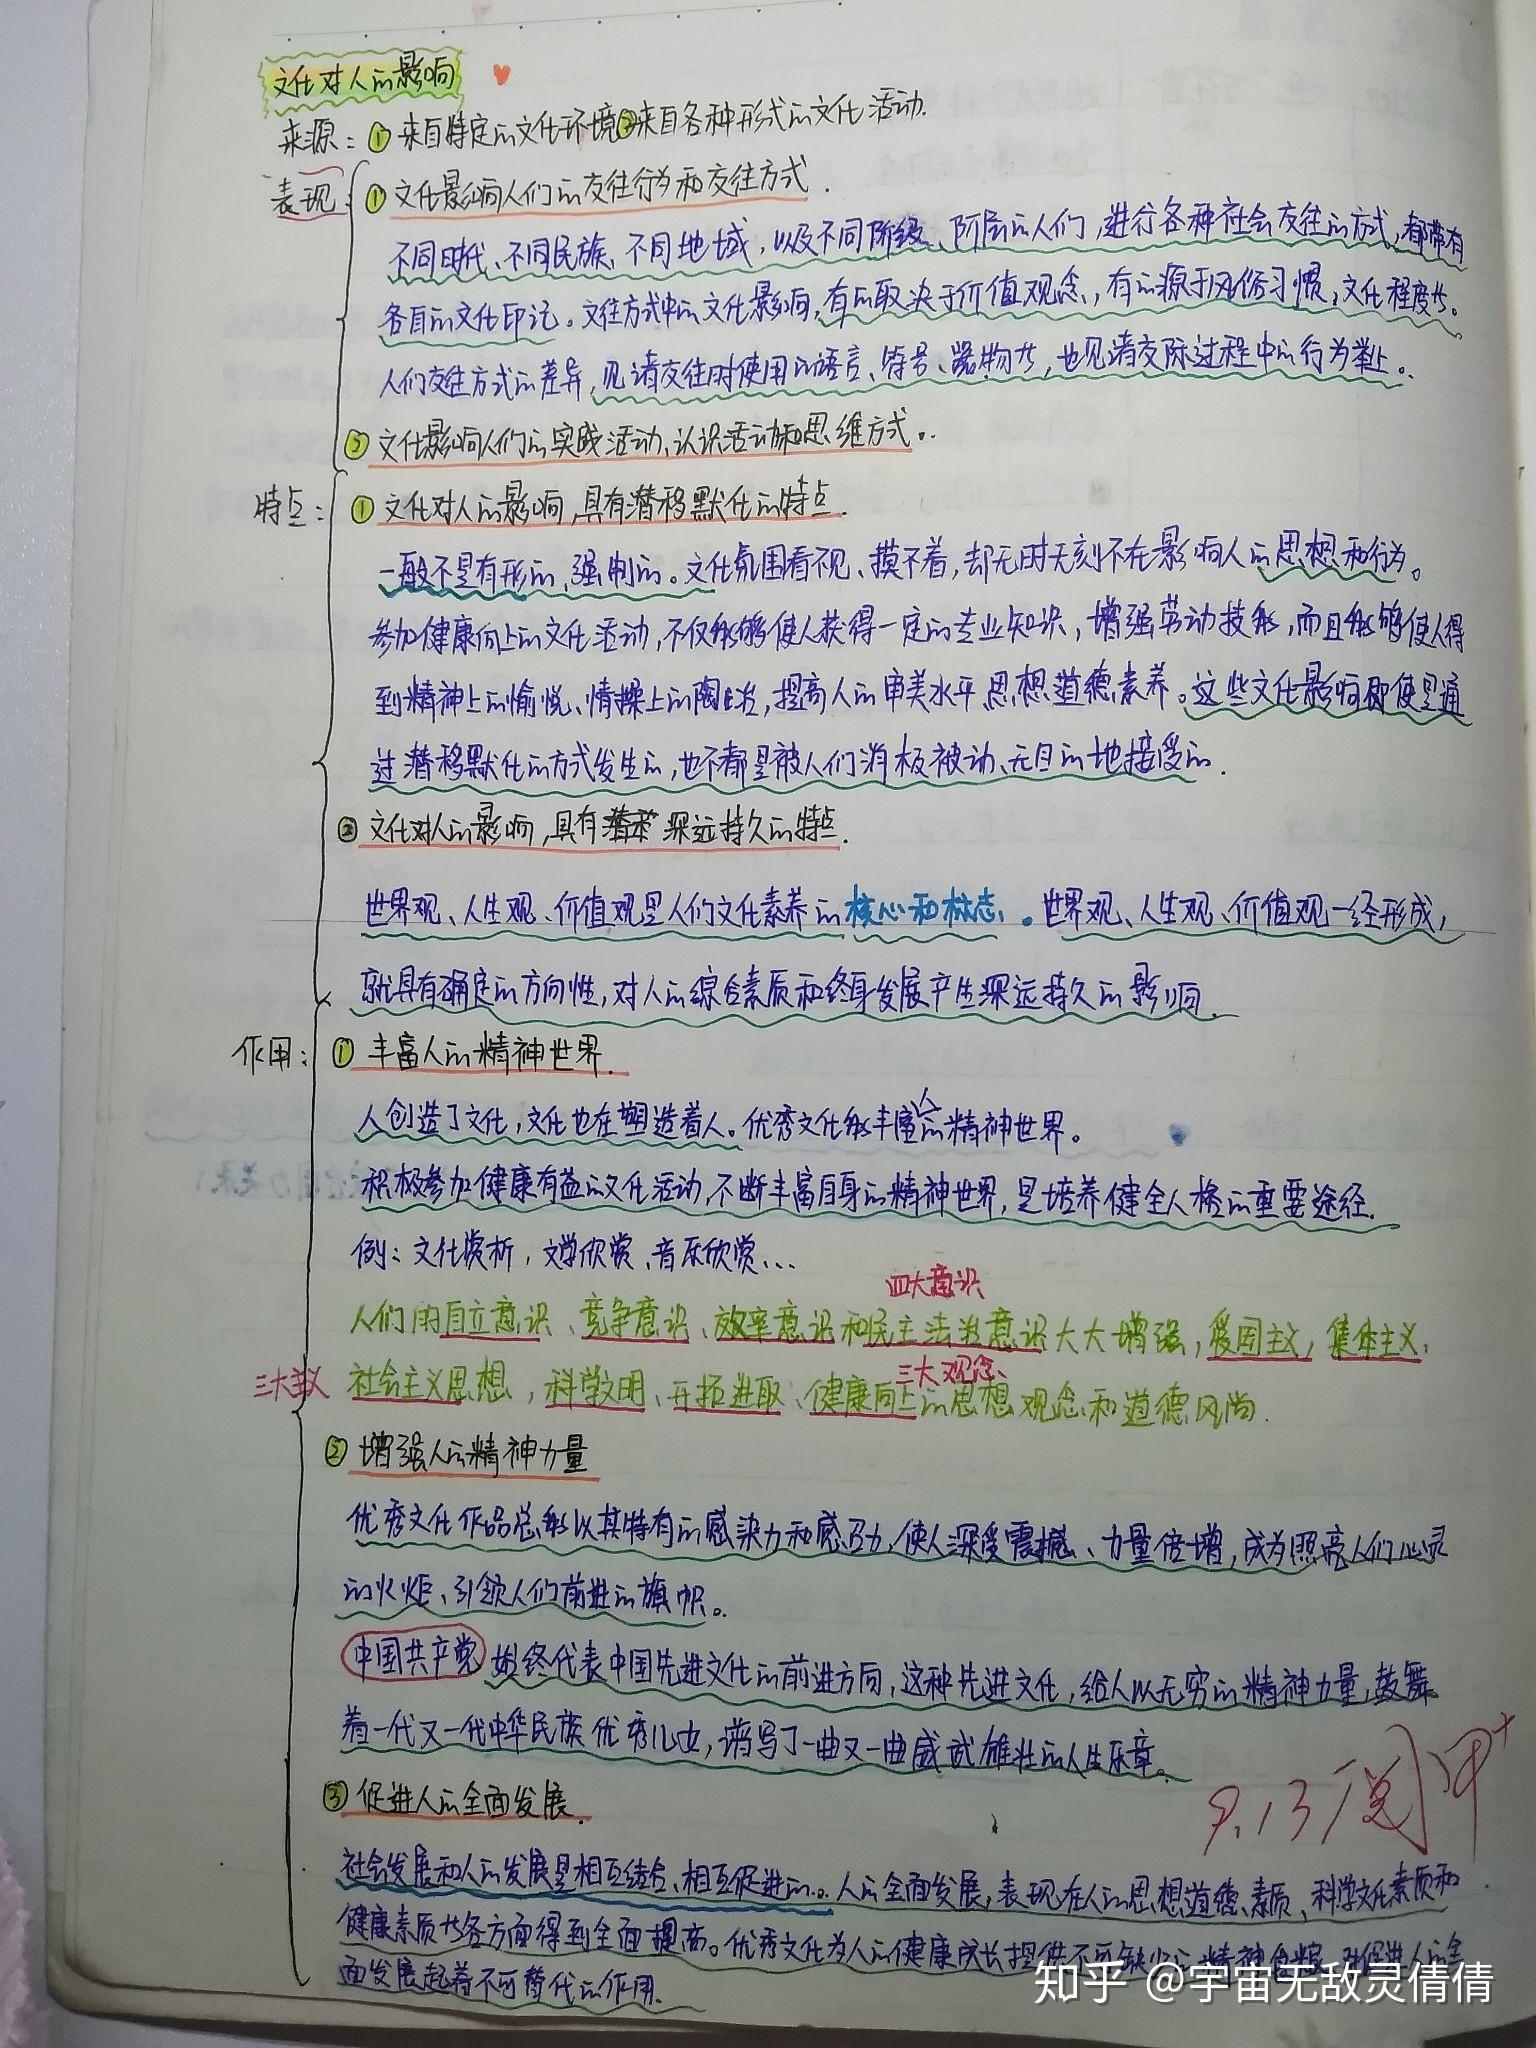 文化对人的影响
来源：①来自特定的文化环境②来自各种形式的文化活动.
表现 ①文化影响人们的交往行为和交往方式.
不同时代、不同民族、不同地域，以及不同阶级、阶层的人们，进行各种社会交往的方式，都带有
各自的文化印记。交往方式中的文化影响，有的取决于价值观念，有的源于风俗习惯，文化程度等。
人们交往方式的差异，见诸交往时使用的语言、符号、器物等，也见诸交际过程中的行为举止。
②文化影响人们的实践活动、认识活动和思维方式。
特点：①文化对人的影响，具有潜移默化的特点.
一般不是有形的、强制的。文化氛围看不见、摸不着，却无时无刻不在影响人的思想和行为。
参加健康向上的文化活动，不仅能够使人获得一定的专业知识，增强劳动技能，而且能够使人得
到精神上的愉悦、情操上的陶冶，提高人的审美水平、思想道德素养。这些文化影响即使是通
过潜移默化的方式发生的，也不都是被人们消极被动、无目的地接受的.
②文化对人的影响，具有深远持久的特点.
世界观、人生观、价值观是人们文化素养的核心和标志。世界观、人生观、价值观一经形成，
就具有确定的方向性，对人的综合素质和终身发展产生深远持久的影响.
作用：①丰富人的精神世界.
人创造了文化，文化也在塑造着人。优秀文化能丰富人的精神世界。
积极参加健康有益的文化活动，不断丰富自身的精神世界，是培养健全人格的重要途径.
例：文化赏析，文学欣赏、音乐欣赏...
四大意识
人们的自立意识、竞争意识、效率意识和民主法治意识大大增强，爱国主义，集体主义，
三大主义 社会主义思想，科学文明、开拓进取、健康向上的思想观念和道德风尚.
三大观念
②增强人的精神力量
优秀文化作品总能以其特有的感染力和感召力，使人深受震撼、力量倍增，成为照亮人们心灵
的火炬、引领人们前进的旗帜。
中国共产党始终代表中国先进文化的前进方向，这种先进文化，给人以无穷的精神力量，鼓舞
着一代又一代中华民族优秀儿女，谱写了一曲又一曲威武雄壮的人生乐章。
③促进人的全面发展.
社会发展和人的发展是相互结合、相互促进的。人的全面发展，表现在人的思想道德、素质、科学文化素质和
健康素质等各方面得到全面提高。优秀文化为人的健康成长提供不可缺少的精神食粮，对促进人的全
面发展起着不可替代的作用.
9.13 阅 甲+
知乎 @宇宙无敌灵倩倩